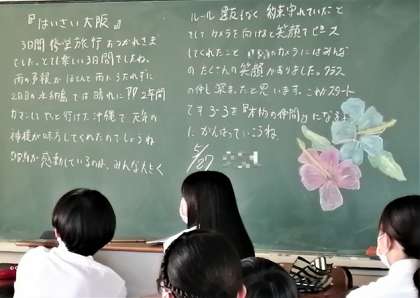 『はいさい大阪』
3日間 修学旅行 おつかれさま
でした。とても楽しい3日間でしたね。
雨の予報が ほとんど雨に うたれずに
2日目の 水納島 では 晴れに 2年間
ガマンして やっと行けた 沖縄で 天気の
神様が味方してくれたのでしょうね
感動しているのは、みんなえらく
ルール 違反なく 約束守れていたこと
そして カメラを向けると 笑顔で ピース
してくれたこと のカメラには みんな
の たくさんの 笑顔 がありました。クラス
の仲も 深まったと思います。これからスタート
です 3-3を『本物の仲間』になるよう
に がんばっていこうね。
5/27